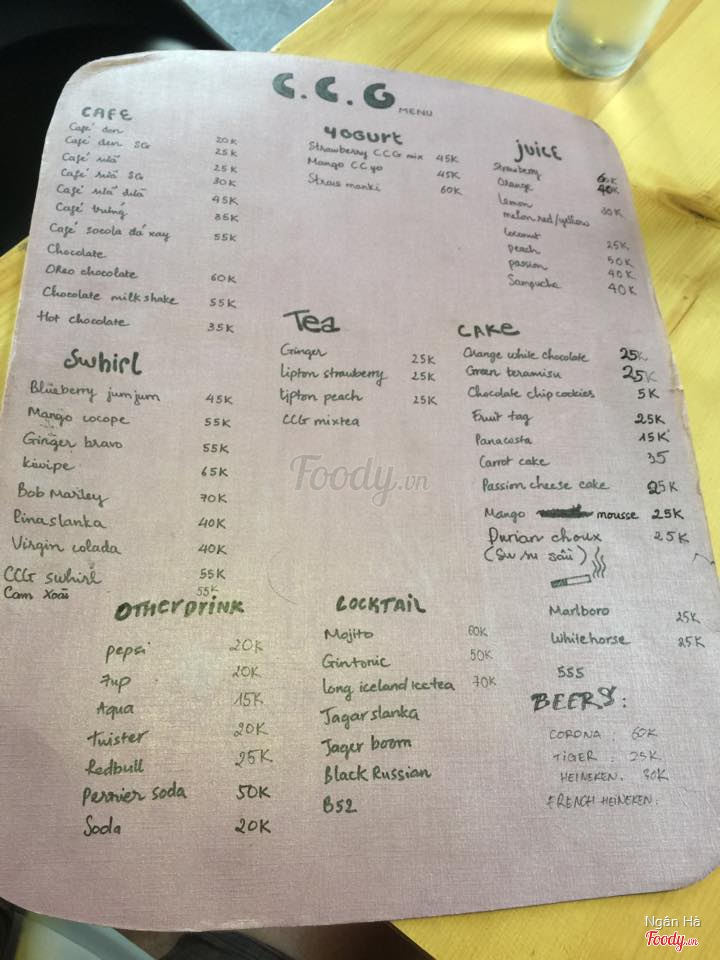 C.C.G MENU
CAFE
Café đen 20K
Café đen SG 25K
Café sữa 25K
Café sữa SG 30K
Café sữa dừa 45K
Café trứng 35K
Café socola đá xay 55K
Chocolate
OReo chocolate 60K
Chocolate milkshake 55K
Hot chocolate 35K
Yogurt
Strawberry CCG mix 45K
Mango CC yo 45K
Straus manki 60K
juice
Strawberry 60K
Orange 40K
Lemon 30K
melon red/yellow
Coconut
peach 25K
passion 50K
Sampucha 40K
40K
Swhirl
Blueberry jumjum 45K
Mango cocope 55K
Ginger bravo 55K
kiwipe 65K
Bob Marley 70K
Pinaslanka 40K
Virgin colada 40K
CCG swhirl 55K
Cam Xoài 55K
Tea
Ginger 25K
Lipton strawberry 25K
Lipton peach 25K
CCG mixtea
CAKE
Orange white chocolate 25K
Green teramisu 25K
Chocolate chip cookies 5K
Fruit tag 25K
Panacosta 15K
Carrot cake 35
Passion cheese cake 25K
Mango mousse 25K
Durian choux 25K
(Su su sầu)
Marlboro 25K
Whitehorse 25K
555
OTHER DRINK
pepsi 20K
7up 20K
Aqua 15K
Twister 20K
Redbull 25K
Perrier soda 50K
Soda 20K
COCKTAIL
Mojito 60K
Gintonic 50K
Long iceland Icetea 70K
Jagar slanka
Jager boom
Black Russian
B52
BEERS:
CORONA : 60K
TIGER : 25K
HEINEKEN. 30K
FRENCH HEINEKEN.
Foody.vn
Ngân Hà
Foody.vn